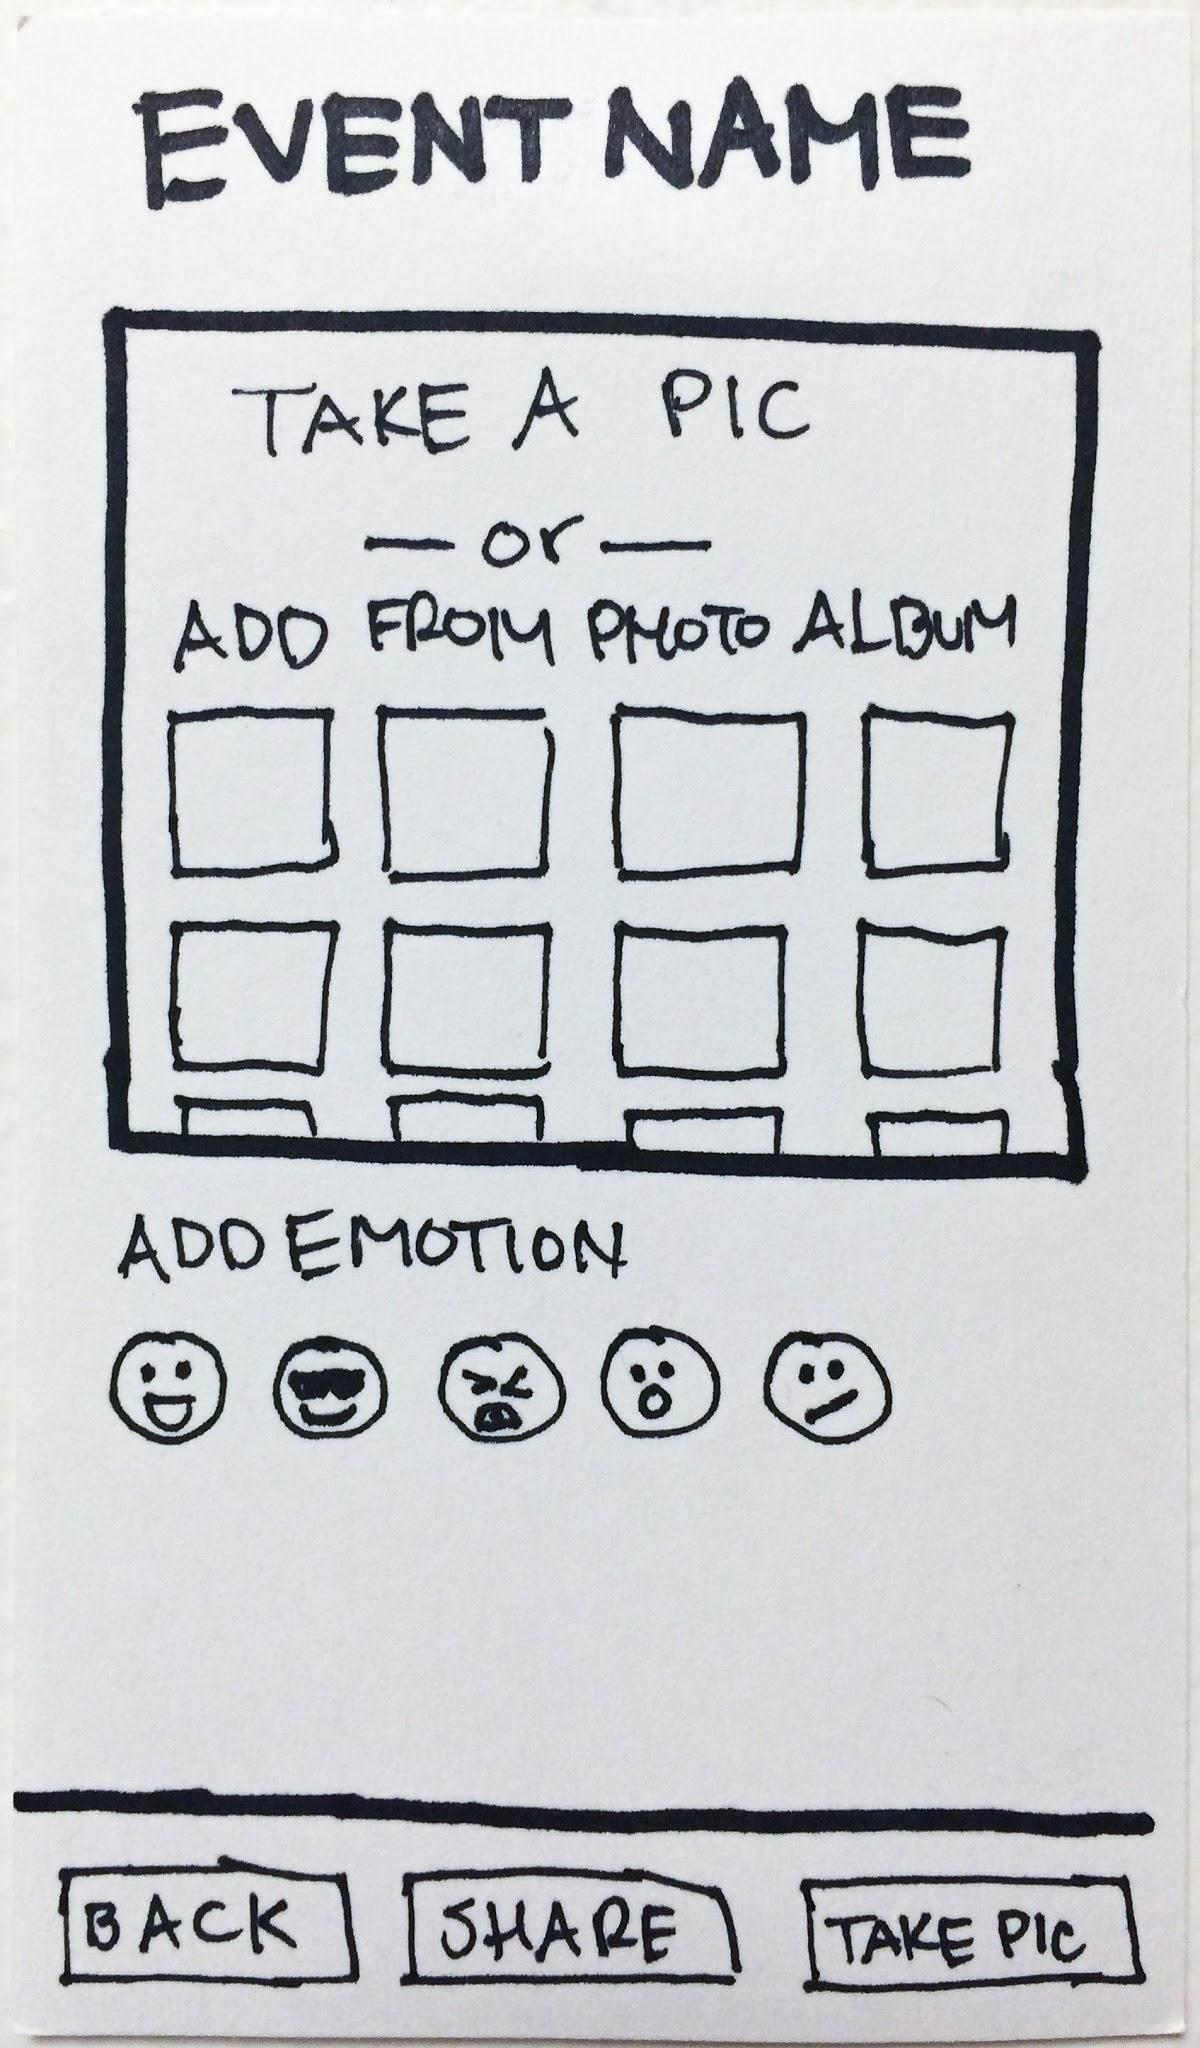 EVENT NAME
TAKE A PIC
— or —
ADD FROM PHOTO ALBUM
ADD EMOTION
BACK
SHARE
TAKE PIC